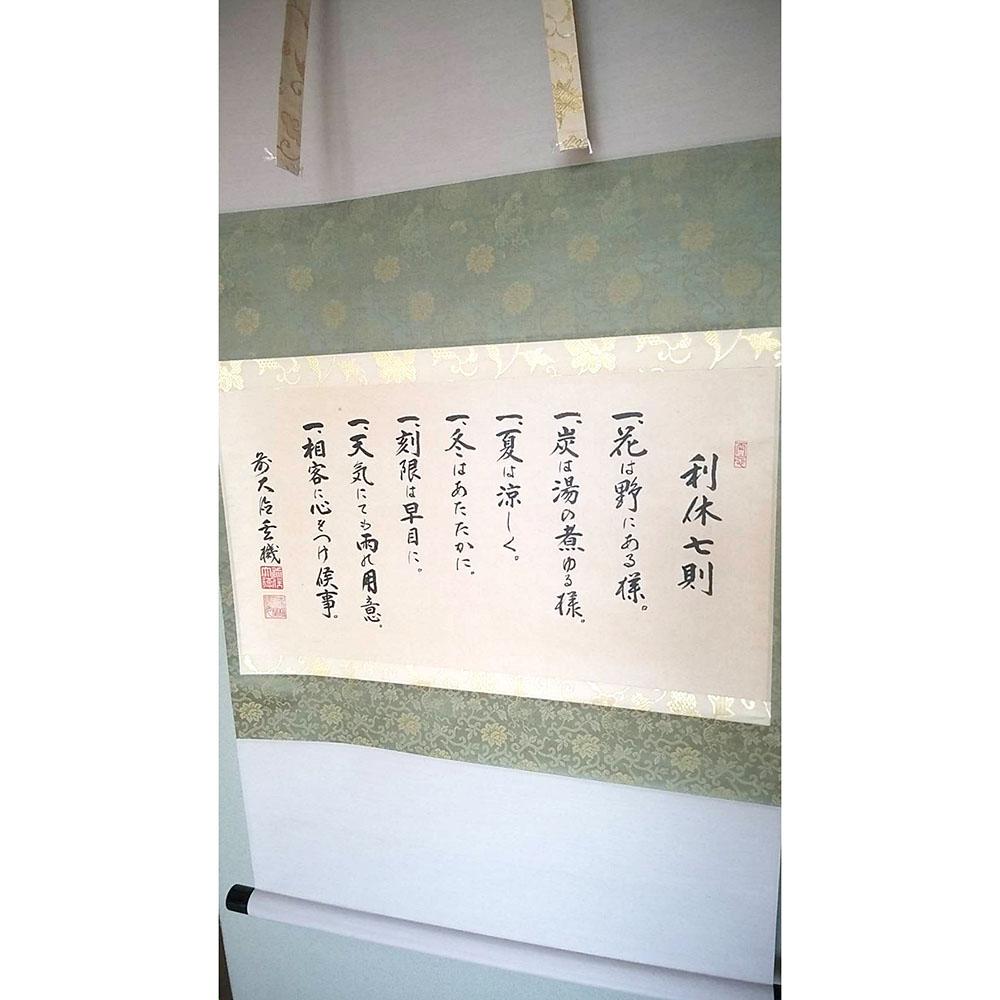 利休七則
一、花は野にある様。
一、炭は湯の煮ゆる様。
一、夏は涼しく。
一、冬はあたたかに。
一、刻限は早目に。
一、天気にても雨の用意。
一、相客に心をつけ候事。
前大徳